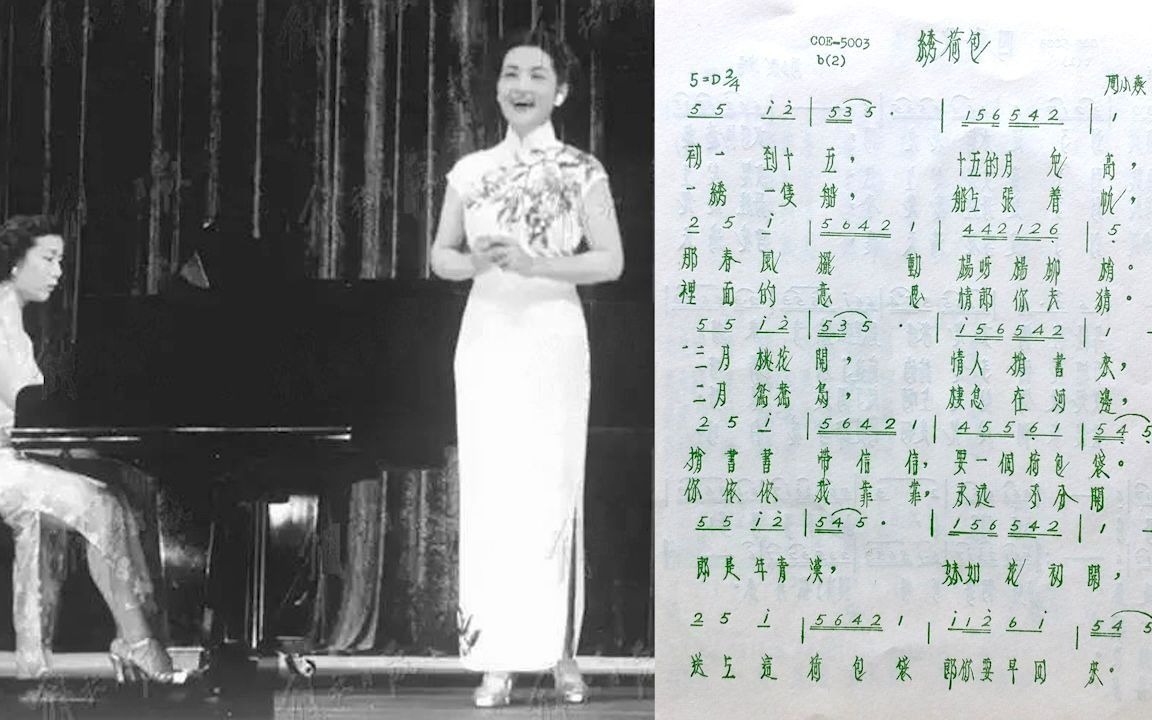 COE-5003 綉荷包
b(2)
5=D 2/4 周小燕
5 5 i 2 | 5 3 5 · | 1 5 6 5 4 2 | 1
初一 到十五， 十五的月兒高，
一綉 一隻船， 船上張着帆，
2 5 i | 5 6 4 2 1 | 4 4 2 1 2 6 | 5
那春風擺動 楊呀楊柳梢。
裡面的思 情郎你去猜。
5 5 i 2 | 5 3 5 · | i 5 6 5 4 2 | 1 -
三月桃花開， 情人捎書來，
二月鴛鴦鳥， 棲息在河邊，
2 5 i | 5 6 4 2 1 | 4 5 5 6 1 | 5 4 5
捎書書帶信信，要一個荷包袋。
你依依我靠靠，永远不分開
5 5 i 2 | 5 4 5 · | 1 5 6 5 4 2 | 1 -
郎是年青漢， 妹如花初開，
2 5 i | 5 6 4 2 1 | i i 2 6 i | 5 4 5
送上這荷包袋 郎你要早回來。